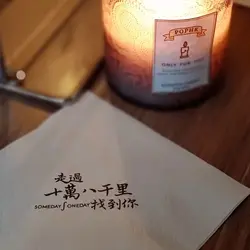 POPHK
ONLY FOR YOU
走過
十萬八千里
SOMEDAY ∫ ONEDAY 找到你